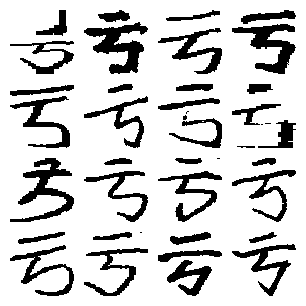 亏亏亏亏
亏亏亏亏
亏亏亏亏
亏亏亏亏